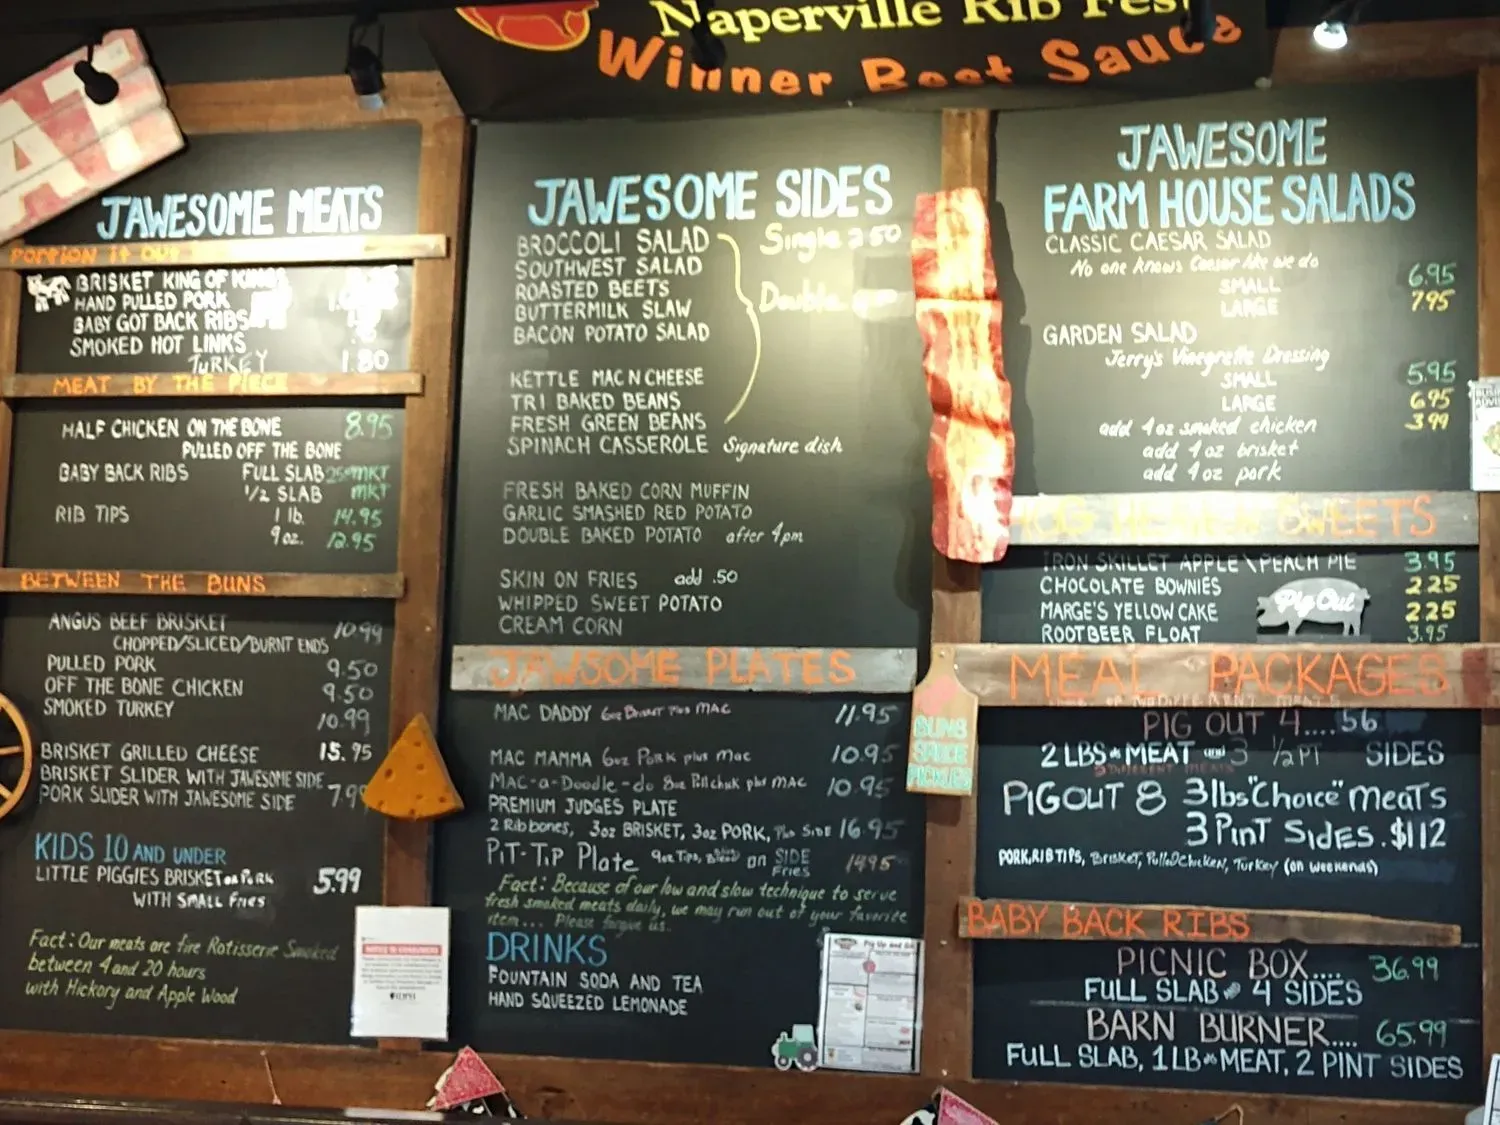 Naperville Rib Fest
Winner Best Sauce
JAWESOME MEATS
PORTION it OUT
BRISKET KING OF KINGS
HAND PULLED PORK
BABY GOT BACK RIBS
SMOKED HOT LINKS
TURKEY 1.80
MEAT BY THE PIECE
HALF CHICKEN ON THE BONE 8.95
PULLED OFF THE BONE
BABY BACK RIBS FULL SLAB MKT
1/2 SLAB MKT
RIB TIPS 1 lb. 14.95
9oz. 12.95
BETWEEN THE BUNS
ANGUS BEEF BRISKET 10.99
CHOPPED/SLICED/BURNT ENDS
PULLED PORK 9.50
OFF THE BONE CHICKEN 9.50
SMOKED TURKEY 10.99
BRISKET GRILLED CHEESE 15.95
BRISKET SLIDER WITH JAWESOME SIDE
PORK SLIDER WITH JAWESOME SIDE 7.99
KIDS 10 AND UNDER
LITTLE PIGGIES BRISKET or PORK 5.99
WITH SMALL FRIES
Fact: Our meats are fire Rotisserie Smoked
between 4 and 20 hours
with Hickory and Apple Wood
JAWESOME SIDES
BROCCOLI SALAD Single 2 50
SOUTHWEST SALAD
ROASTED BEETS Double
BUTTERMILK SLAW
BACON POTATO SALAD
KETTLE MAC N CHEESE
TRI BAKED BEANS
FRESH GREEN BEANS
SPINACH CASSEROLE Signature dish
FRESH BAKED CORN MUFFIN
GARLIC SMASHED RED POTATO
DOUBLE BAKED POTATO after 4pm
SKIN ON FRIES add .50
WHIPPED SWEET POTATO
CREAM CORN
JAWSOME PLATES
MAC DADDY 6oz Brisket Plus MAC 11.95
MAC MAMMA 6oz Pork plus Mac 10.95
MAC-a-Doodle-do 8oz Pllchuk plus MAC 10.95
PREMIUM JUDGES PLATE
2 Rib bones, 3oz BRISKET, 3oz PORK, Plus SIDE 16.95
PiT-TiP Plate 9oz Tips, on SIDE Fries 14.95
Fact: Because of our low and slow technique to serve
fresh smoked meats daily, we may run out of your favorite
item... Please forgive us.
DRINKS
FOUNTAIN SODA AND TEA
HAND SQUEEZED LEMONADE
BUNS
SAUCE
PICKLES
JAWESOME
FARM HOUSE SALADS
CLASSIC CAESAR SALAD
No one knows Caesar like we do
SMALL 6.95
LARGE 7.95
GARDEN SALAD
Jerry's Vinegrette Dressing
SMALL 5.95
LARGE 6.95
add 4 oz smoked chicken 3.99
add 4 oz brisket
add 4 oz pork
HOG HEAVEN SWEETS
IRON SKILLET APPLE\PEACH PIE 3.95
CHOCOLATE BOWNIES 2.25
MARGE'S YELLOW CAKE 2.25
ROOTBEER FLOAT 3.95
Pig Out
MEAL PACKAGES
PIG OUT 4....56
2 LBS MEAT and 3 1/2 PT SIDES
PIG OUT 8 3lbs "Choice" Meats
3 Pint Sides. $112
PORK, RIB TIPS, Brisket, Pulled Chicken, Turkey (on weekends)
BABY BACK RIBS
PICNIC BOX.... 36.99
FULL SLAB 4 SIDES
BARN BURNER.... 65.99
FULL SLAB, 1 LB MEAT, 2 PINT SIDES